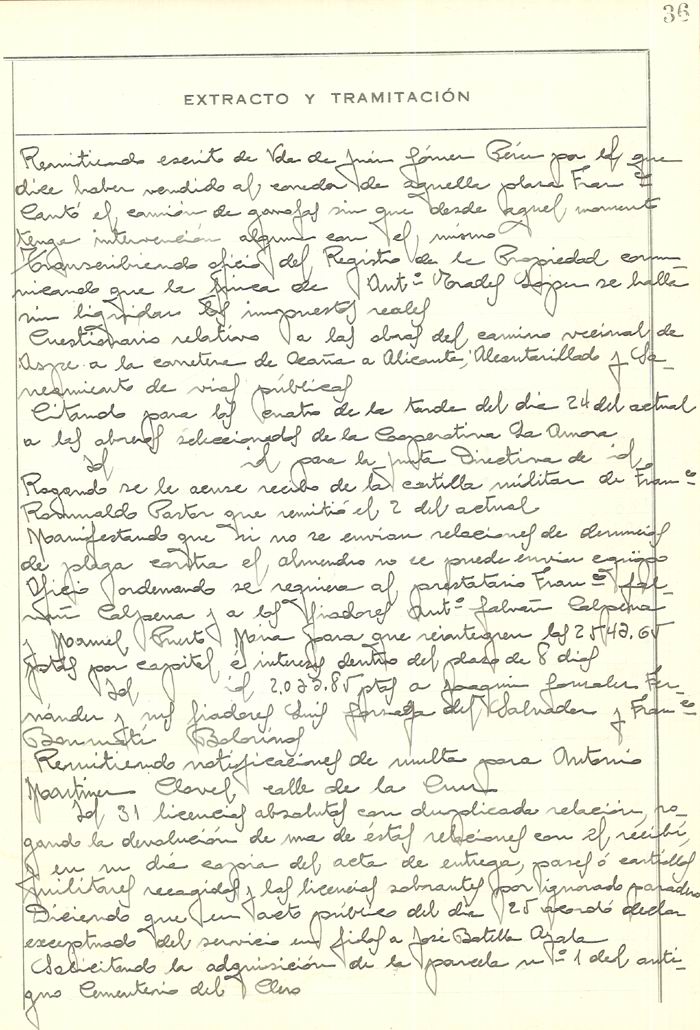 36
EXTRACTO Y TRAMITACIÓN
Remitiendo escrito de Vda de Juan Gómez Pérez por el que
dice haber vendido al corredor de aquella plaza Fran co
Cantó el camión de gaseosas sin que desde aquel momento
tenga intervención alguna con el mismo
Transcribiendo oficio del Registro de la Propiedad comu-
nicando que la finca de Antº Prades López se halla
sin liquidar los impuestos reales
Cuestionario relativo a las obras del camino vecinal de
Aspe a la carretera de Ocaña a Alicante, Alcantarillado y Sa-
neamiento de vias públicas
Citando para las cuatro de la tarde del dia 24 del actual
a los obreros seleccionados de la Cooperativa La Aurora
Id id para la Junta Directiva de id
Rogando se le acuse recibo de la cartilla militar de Franco
Romualdo Pastor que remitió el 2 del actual
Manifestando que si no se envian relaciones de denuncias
de plaga contra el almendro no se puede enviar equipo
Oficio ordenando se requiera al prestatario Franco Gal-
vañ Calpena y a los fiadores Antº Galvañ Calpena
y Manuel Puerto Mira para que reintegren las 2542.65
ptas por capital e interes dentro del plazo de 8 dias
Id id 2.022.85 ptas a Joaquin Gonzalez Fer-
nández y sus fiadores Luis Gonzalez del Salvador y Franco
Bonmatí Belorinos
Remitiendo notificaciones de multa para Antonio
Martinez Clavel calle de la Cruz
Id 31 licencias absolutas con duplicada relación, ro-
gando la devolución de una de éstas relaciones con el recibí,
y en su dia copia del acta de entrega, pases ó cartillas
militares recogidas y las licencias sobrantes por ignorado paradero
Diciendo que en acto público del dia 25 acordó declar
exceptuado del servicio en filas a José Botella Azala
Solicitando la adquisición de la parcela nº 1 del anti-
guo Cementerio del Clero